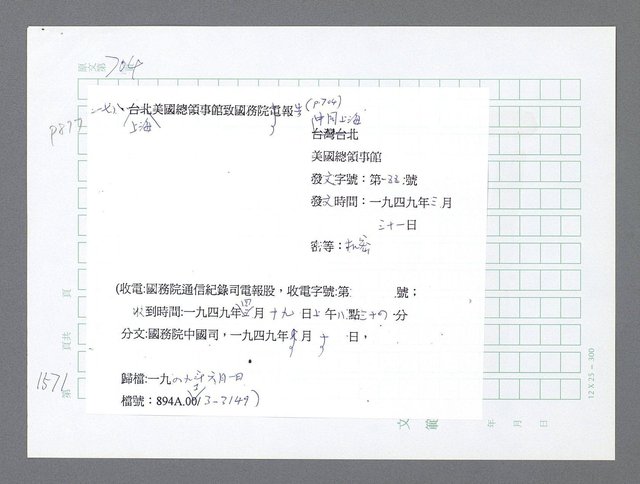 原文第 704
P877
一七八、台北美國總領事館致國務院電報告 (P.704)
上海
中国上海
台灣台北
美國總領事館
發文字號：第一三三號
發文時間：一九四九年三月
三十一日
密等：机密
(收電:國務院通信紀錄司電報股，收電字號:第 號；
收到時間:一九四九年四月十九日上午八點三十 分
分文:國務院中國司，一九四九年 月 日，
歸檔:一九四九年六月一日
檔號：894A.00/3-3149)
頁
頁共
1571
第
12 X 25 － 300
文 範 年 月 日